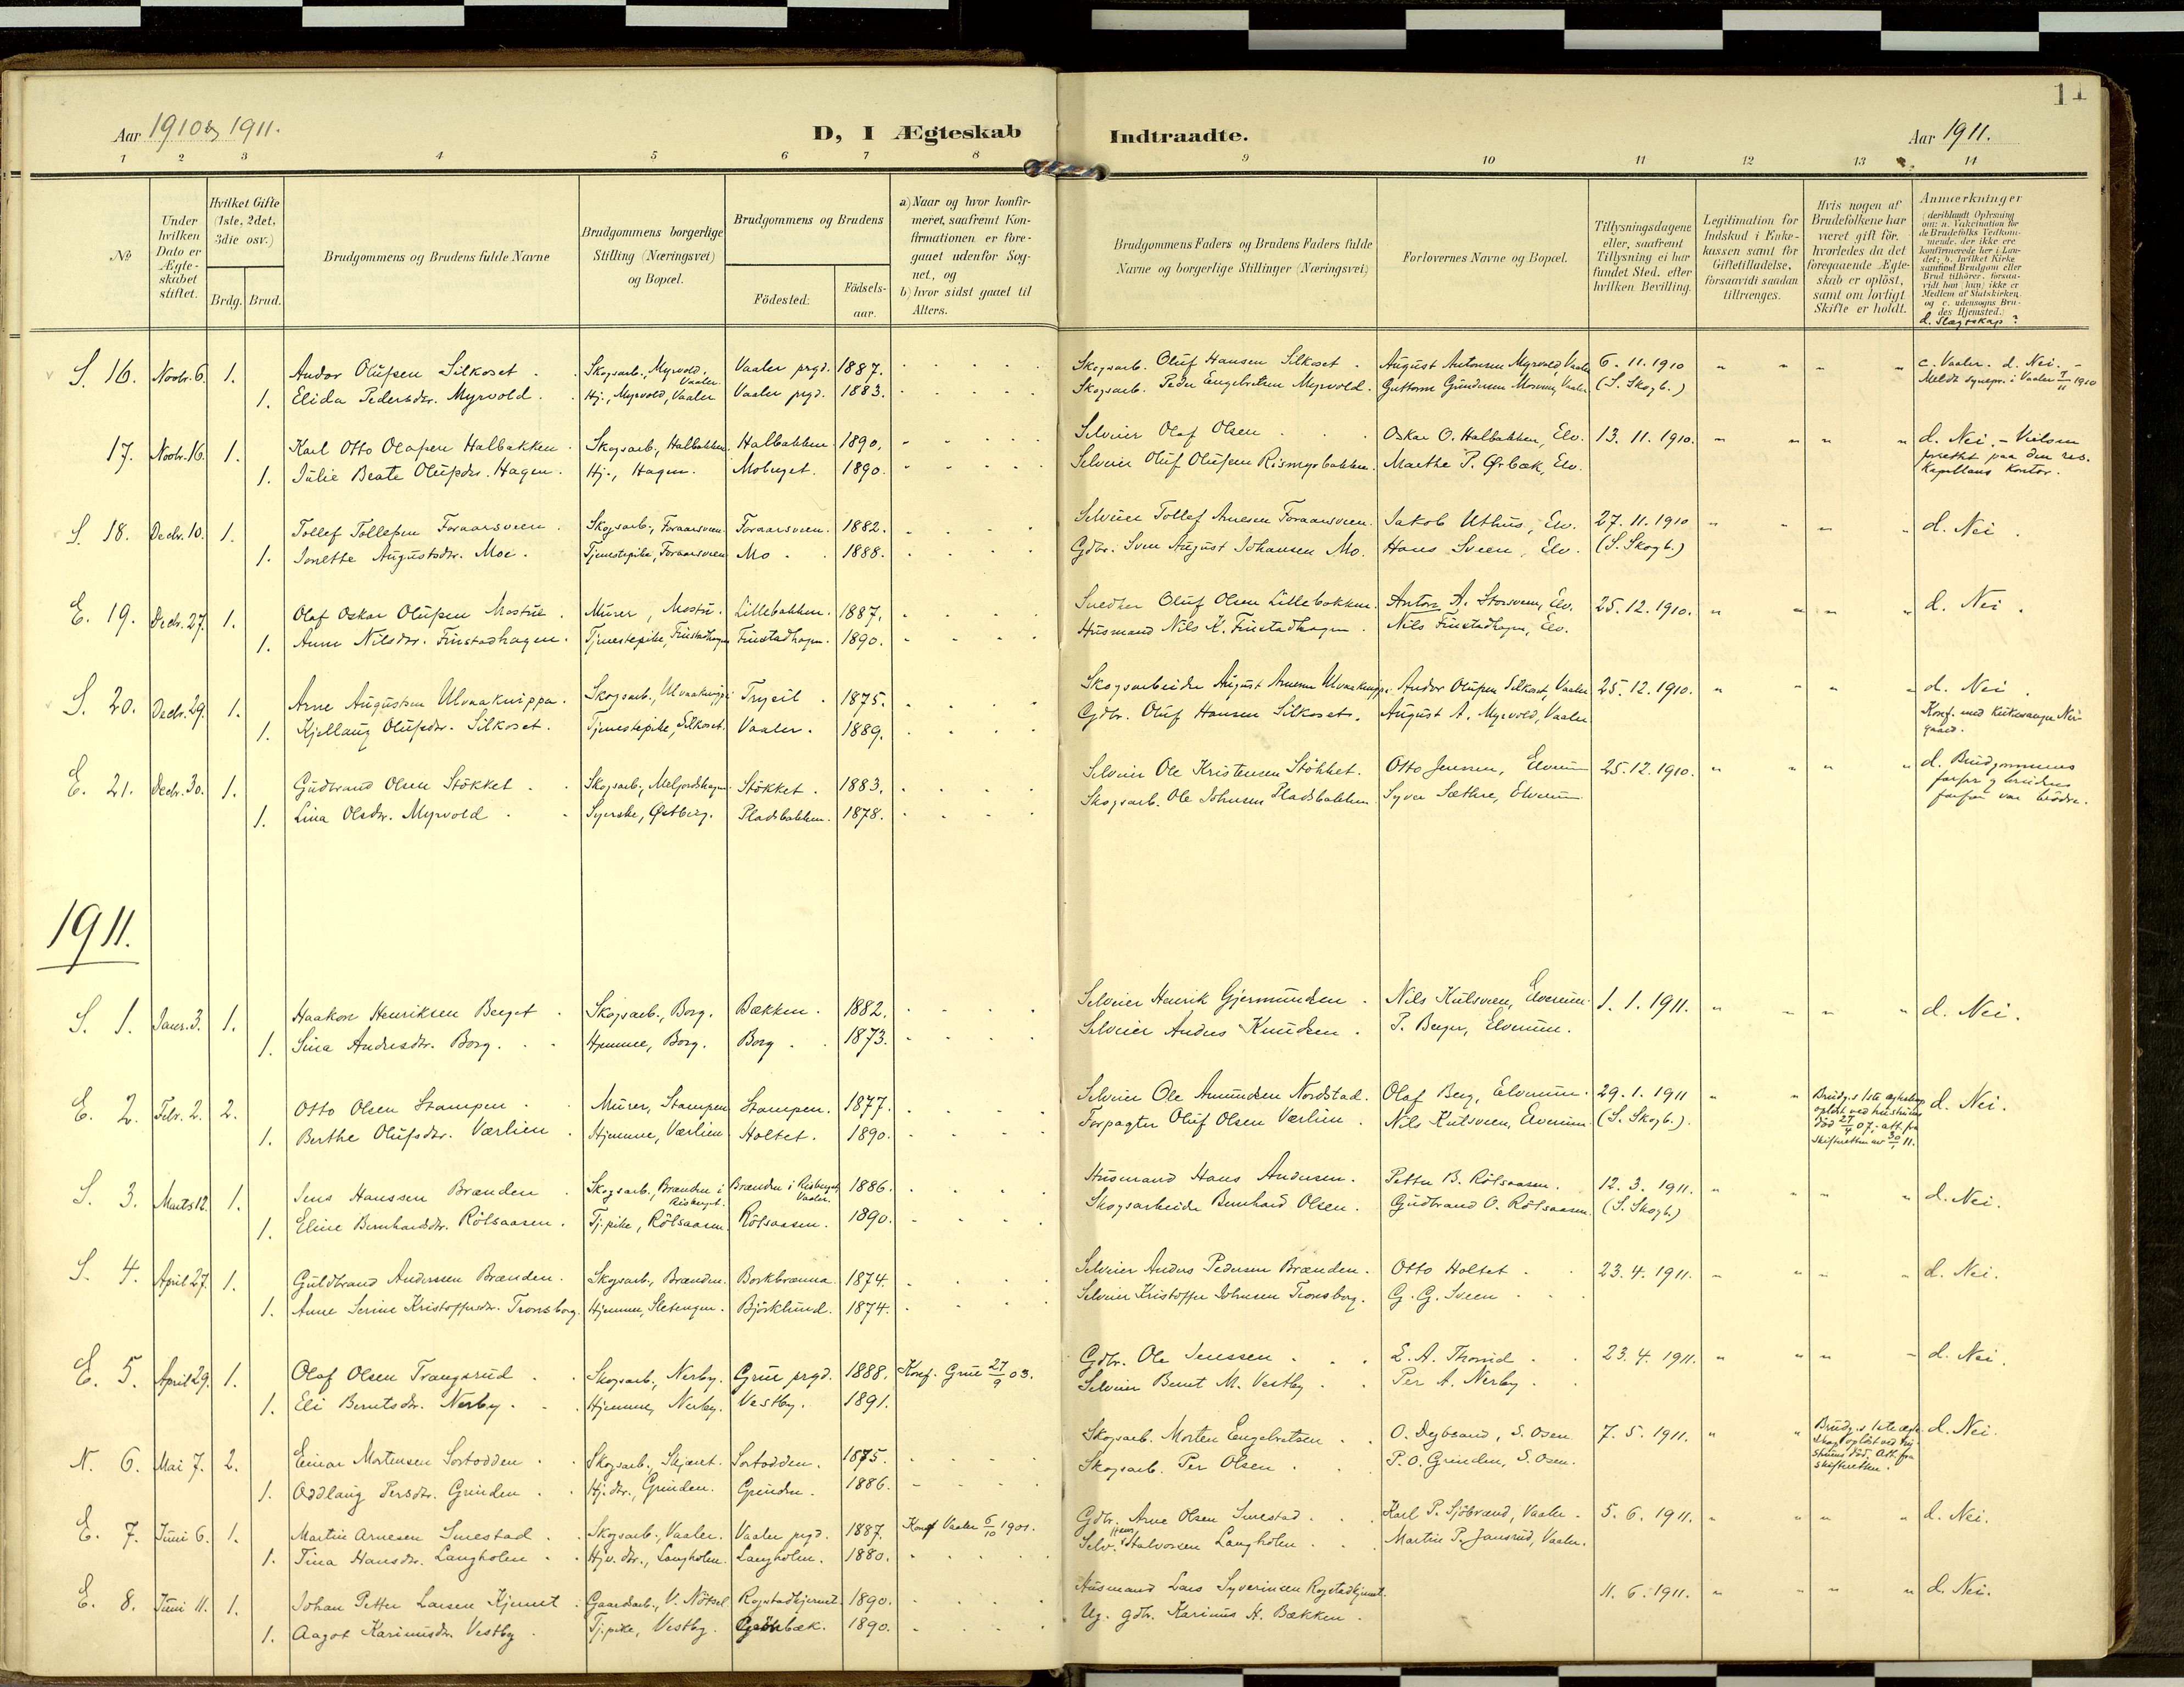 11
Aar 1910 & 1911.
D, I Ægteskab Indtraadte.
Aar 1911.
1 2 3 4 5 6 7 8 9 10 11 12 13 14
No
Under hvilken Dato er Ægteskabet stiftet.
Hvilket Gifte (1ste, 2det, 3die osv.)
Brdg. Brud.
Brudgommens og Brudens fulde Navne
Brudgommens borgerlige Stilling (Næringsvei) og Bopæl.
Brudgommens og Brudens
Födested:
Födselsaar.
a) Naar og hvor konfirmeret, saafremt Konfirmationen er foregaaet udenfor Sognet, og
b) hvor sidst gaaet til Alters.
Brudgommens Faders og Brudens Faders fulde Navne og borgerlige Stillinger (Næringsvei)
Forlovernes Navne og Bopæl.
Tillysningsdagene eller, saafremt Tillysning ei har fundet Sted, efter hvilken Bevilling.
Legitimation for Indskud i Enkekassen samt for Giftetilladelse, forsaavidt saadan tiltrænges.
Hvis nogen af Brudefolkene har været gift för, hvorledes da det foregaaende Ægteskab er oplöst, samt om lovligt Skifte er holdt.
Anmærkninger (deriblandt Oplysning om: a. Vakcination for de Brudefolks Vedkommende, der ikke ere konfirmerede her i Landet; b. hvilket Kirkesamfund Brudgom eller Brud tilhörer, forsaavidt han (hun) ikke er Medlem af Statskirken, og c. udensogns Brudes Hjemsted.)
d. Slægtskap?
S. 16. Novbr. 6. 1. Andor Olufsen Silkoset. Skogsarb., Myrvold, Vaaler Vaaler prgd. 1887. Skogsarb. Oluf Hansen Silkoset. August Antonsen Myrvold, Vaaler 6.11.1910 c. Vaaler. d. Nei. –
1. Elida Pedersdtr. Myrvold. Hj., Myrvold, Vaaler Vaaler prgd. 1883. Skogsarb. Peder Engebretsen Myrvold. Guttorm Gundersen Vaaler (S. Skogb.) Meldt sognepr. i Vaaler 7/11 1910
17. Novbr. 16. 1. Karl Otto Olafsen Halbakken. Skogsarb., Halbakken. Halbakken. 1890. Selveier Olaf Olsen. Oskar O. Halbakken, Elv. 13.11.1910. d. Nei. – Vielsen
1. Julie Beate Olufsdtr. Hagen. Hj., Hagen. Moberget. 1890. Selveier Oluf Olufsen Rismyrbakken. Marthe P. Ørbæk, Elv. forrettet paa den res. Kapellans kontor.
S. 18. Decbr. 10. 1. Tollef Tollefsen Foraarsveen. Skogsarb., Foraarsveen. Foraarsveen. 1882. Selveier Tollef Arnesen Foraarsveen. Jakob Uthus, Elv. 27.11.1910 d. Nei.
1. Jonette Augustsdtr. Moe. Tjenestepike, Foraarsveen Mo. 1888. Gdbr. Sven August Johansen Mo. Hans Sveen, Elv. (S. Skogb.)
E. 19. Decbr. 27. 1. Olaf Oskar Olufsen Mostue. Murer, Mostu. Lillebakken. 1887. Snedker Oluf Olsen Lillebakken. Anton A. Storsveen, Elv. 25.12.1910. d. Nei.
1. Anne Nilsdtr. Finstadhagen. Tjenestepike, Finstadhagen Finstadhagen. 1890. Husmand Nils K. Finstadhagen. Nils Finstadhagen, Elv.
S. 20. Decbr. 29. 1. Arne Augustsen Ulvaaknippa. Skogsarb., Ulvaaknippa Trysil 1875. Skogsarbeider August Arnesen Ulvaaknippa. Andor Olufsen Silkoset, Vaaler 25.12.1910. d. Nei.
1. Kjellaug Olufsdtr. Silkoset. Tjenestepike, Silkoset. Vaaler. 1889. Gdbr. Oluf Hansen Silkoset. August A. Myrvold, Vaaler Konf. med kirkesanger Neigaard.
E. 21. Decbr. 30. 1. Gudbrand Olsen Stökket. Skogsarb., Meljordshagen. Stökket. 1883. Selveier Ole Kristensen Stökket. Otto Jensen, Elverum 25.12.1910. d. Brudgommens farfar og brudens farfar var brödre.
1. Lina Olsdtr. Myrvold. Syerske, Østberg. Pladsbakken. 1878. Skogsarb. Ole Johnsen Pladsbakken. Syver Sæthre, Elverum
1911.
S. 1. Janr. 3. 1. Haakon Henriksen Berget. Skogsarb., Borg. Bækken. 1882. Selveier Henrik Gjermundsen. Nils Kulsveen, Elverum. 1.1.1911. d. Nei.
1. Sina Andersdtr. Borg. Hjemme, Borg. Borg. 1873. Selveier Anders Knudsen. P. Berger, Elverum.
E. 2. Febr. 2. 2. Otto Olsen Stampen. Murer, Stampen Stampen. 1877. Selveier Ole Amundsen Nordstad. Olaf Berg, Elverum. 29.1.1911 Brudg.s 1ste egteskap oplöst ved hustruens död 27/4 07; att. fra skifteretten av 30/1 11. d. Nei.
1. Berthe Olufsdtr. Værlien. Hjemme, Værlien. Holtet. 1890. Forpagter Oluf Olsen Værlien. Nils Kulsveen, Elverum. (S. Skogb.).
S. 3. Marts 12. 1. Jens Hanssen Brænden. Skogsarb., Brænden i Risberget. Brænden i Risberget, Vaaler. 1886. Husmand Hans Andersen. Petter B. Rölsaasen. 12.3.1911. d. Nei.
1. Eline Bernhardsdtr. Rölsaasen. Tj.pike, Rölsaasen. Rölsaasen. 1890. Skogsarbeider Bernhard Olsen. Gudbrand O. Rölsaasen. (S. Skogb.)
S. 4. April 27. 1. Guldbrand Anderssen Brænden. Skogsarb., Brænden. Borkbrænna. 1874. Selveier Anders Pedersen Brænden. Otto Holtet. 23.4.1911. d. Nei.
1. Anne Serine Kristoffersdtr. Tronsborg. Hjemme, Sletengen. Björklund. 1874. Selveier Kristoffer Johnsen Tronsborg. G. G. Sveen
E. 5. April 29. 1. Olaf Olsen Trangsrud. Skogsarb., Nerby. Grue prgd. 1888. Konf. Grue 27/9 03. Gdbr. Ole Jenssen. E. A. Thorud. 23.4.1911. d. Nei.
1. Eli Berntsdtr. Nerby. Hjemme, Nerby. Vestby. 1891. Selveier Bernt M. Vestby. Per A. Nerby.
N. 6. Mai 7. 2. Einar Mortensen Sortodden. Skogsarb., Skjæret. Sortodden. 1875. Skogsarb. Morten Engebretsen. O. Degbrand, S. Osen. 7.5.1911. Brudg.s 1ste egteskap oplöst ved hustruens död. Att. fra skifteretten. d. Nei.
1. Oddlaug Persdtr. Grinden. Hj. dtr., Grinden. Grinden. 1886. Skogsarb. Per Olsen. P. O. Grinden, S. Osen.
E. 7. Juni 6. 1. Martin Arnesen Smestad. Skogsarb., Vaaler. Vaaler prgd. 1887. Konf Vaaler 6/10 1901. Gdbr. Arne Olsen Smestad. Karl P. Sjöbrænd, Vaaler. 5.6.1911. d. Nei.
1. Tina Hansdtr. Langholen. Hjv. dtr., Langholen. Langholen. 1880. Selv. Hans Halvorsen Langholen. Martin P. Jansrud, Vaaler.
E. 8. Juni 11. 1. Johan Petter Larsen Kjernet. Gaardsarb., V. Nötsel Rogstadkjernet. 1890. Husmand Lars Syverinsen Rogstadkjernet. 11.6.1911. d. Nei.
1. Aagot Karinusdtr. Vestby. Tj.pike, Vestby. 1890. Ug. gdbr. Karinus H. Bækken.